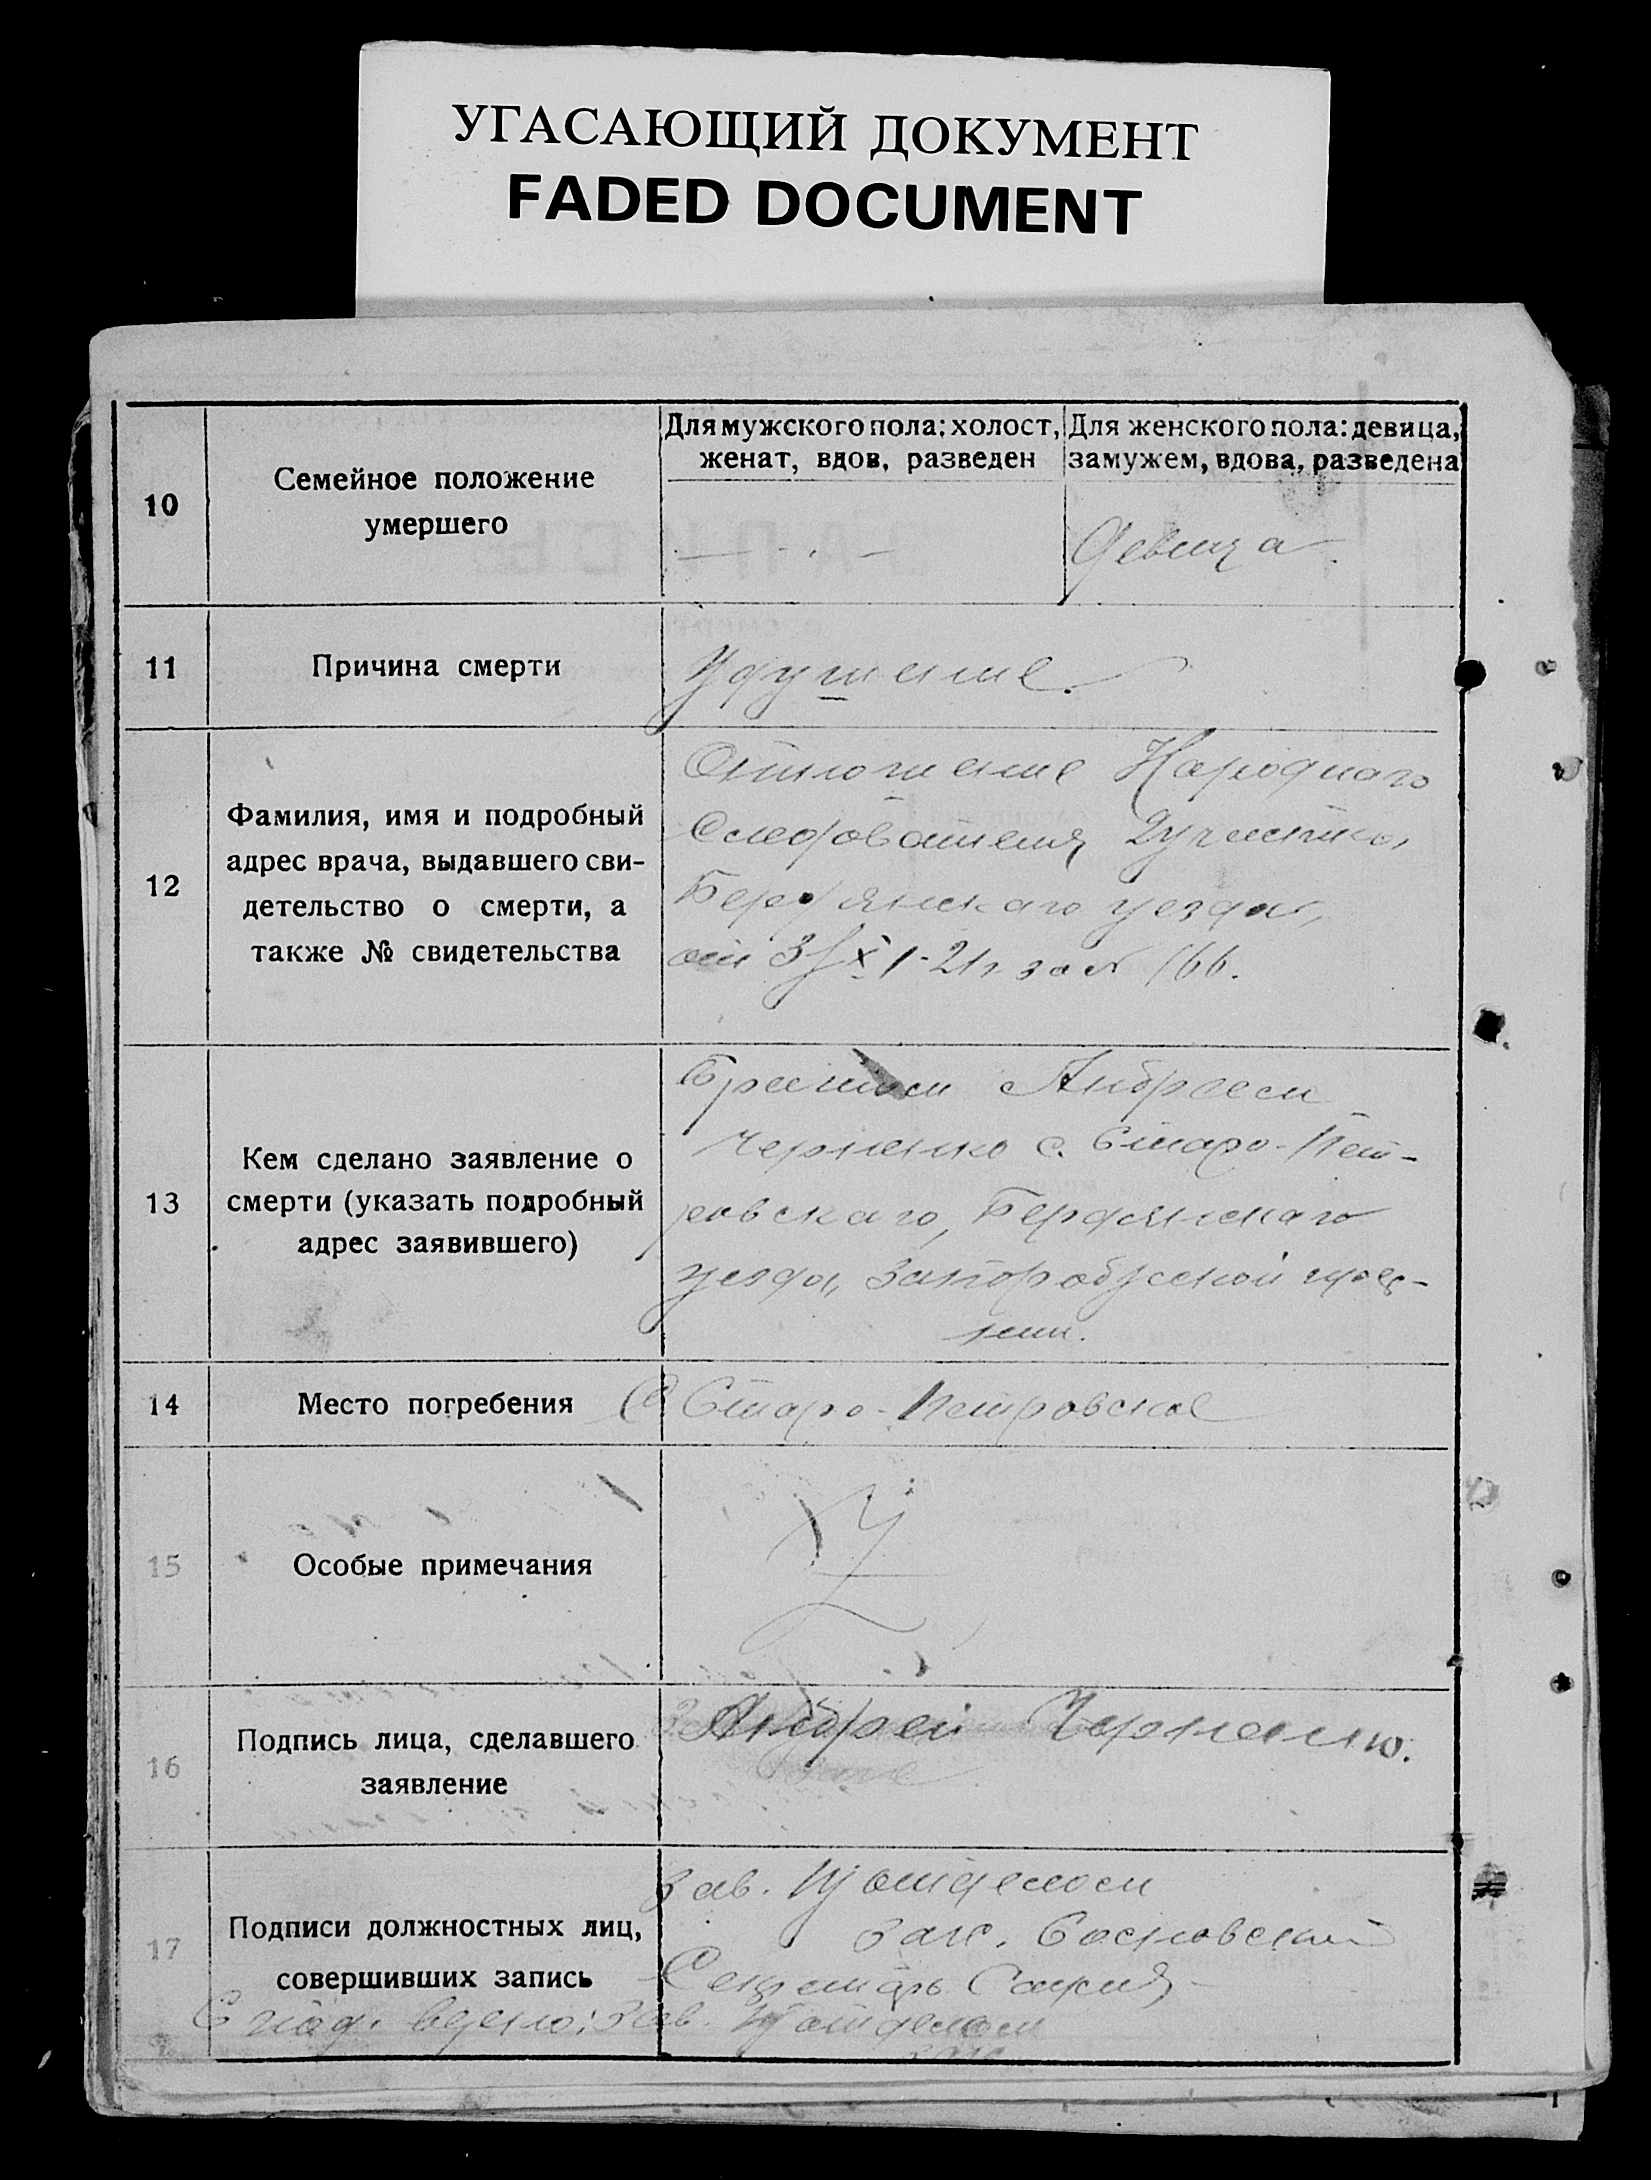 УГАСАЮЩИЙ ДОКУМЕНТ
FADED DOCUMENT
10
Семейное положение
умершего
Для мужского пола: холост,
женат, вдов, разведен
Для женского пола: девица,
замужем, вдова, разведена
Девица
11
Причина смерти
Удушение.
12
Фамилия, имя и подробный
адрес врача, выдавшего сви-
детельство о смерти, а
также № свидетельства
Отношение Народного
Следователя
Бердянского уезда,
от 3/XI-21г за № 166.
13
Кем сделано заявление о
смерти (указать подробный
адрес заявившего)
Братом Андреем
Черненко с. Старо-Пет-
ровского, Бердянского
уезда, Запорожской
14
Место погребения
С Старо-Петровское
15
Особые примечания
16
Подпись лица, сделавшего
заявление
Андрей Черненко.
17
Подписи должностных лиц,
совершивших запись
Зав. П/отделом
Загс. Сосновский
Секретарь
С подл. верно: Зав. П/отделом
Загс